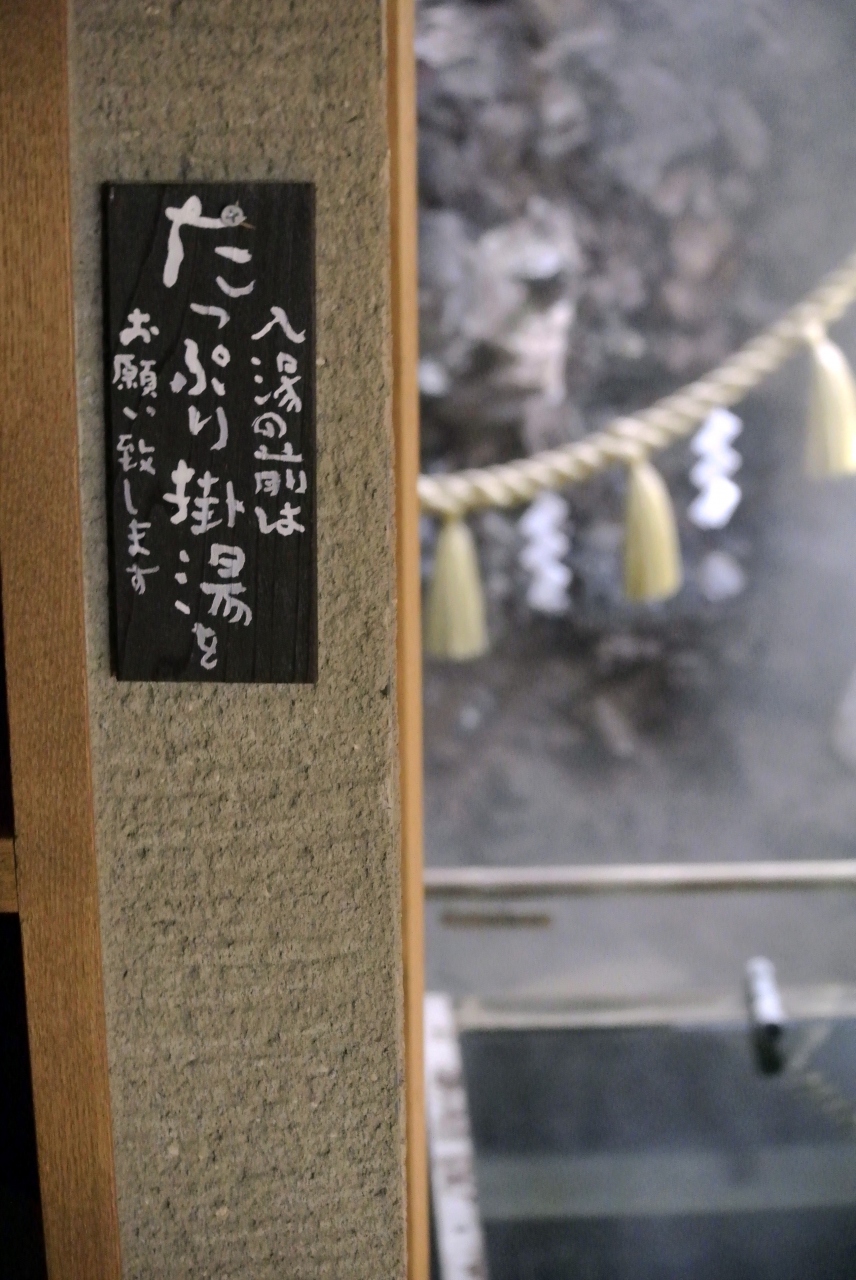 入湯の前は
たっぷり掛湯を
お願い致します